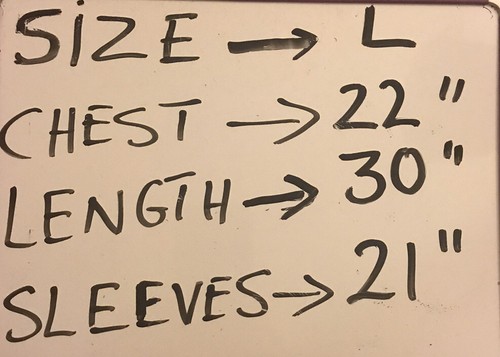 SIZE → L
CHEST → 22"
LENGTH → 30"
SLEEVES → 21"